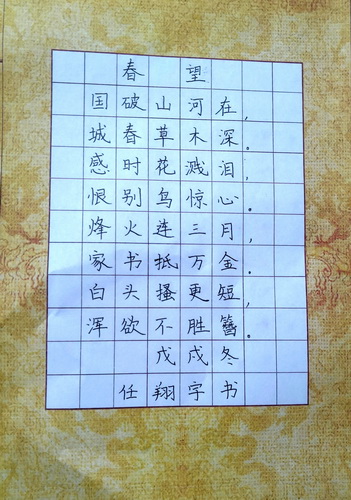 春望
国破山河在，
城春草木深。
感时花溅泪，
恨别鸟惊心。
烽火连三月，
家书抵万金。
白头搔更短，
浑欲不胜簪。
戊戌冬
任翔字书